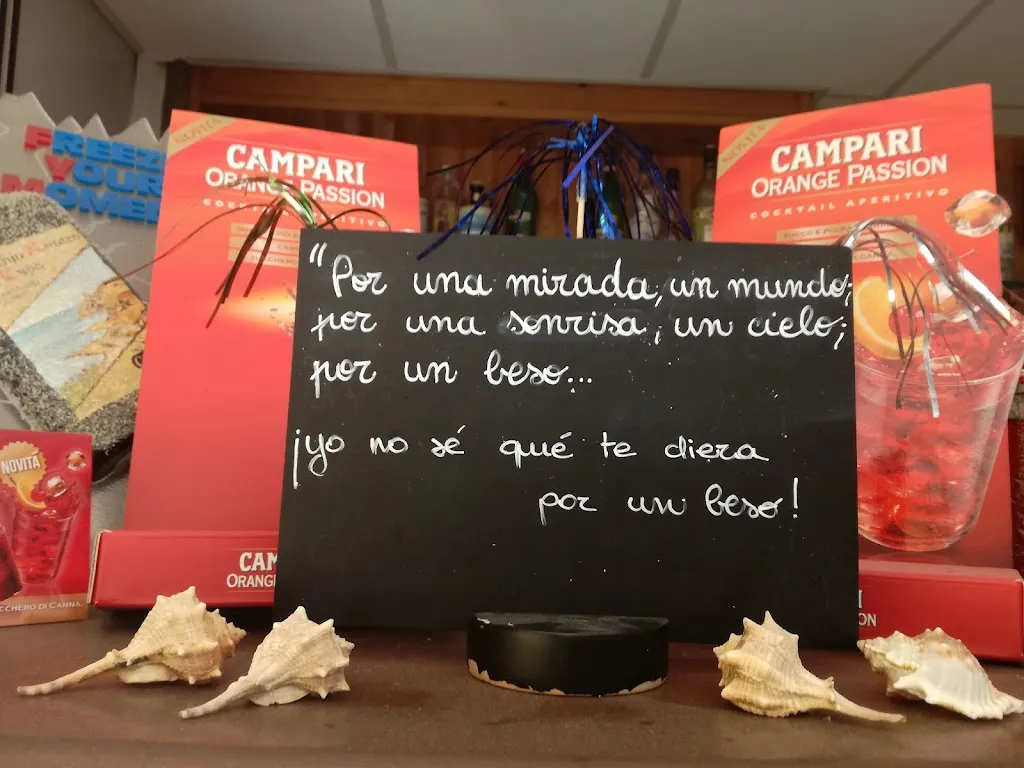 FREEZE
YOUR
MOMENT
NOVITÀ
CAMPARI
ORANGE PASSION
COCKTAIL APERITIVO
NOVITÀ
CAMPARI
ORANGE PASSION
COCKTAIL APERITIVO
"Por una mirada, un mundo;
por una sonrisa, un cielo;
por un beso...
¡yo no sé qué te diera
por un beso!
NOVITÀ
CCHERO DI CANNA
CAM
ORANG
RI
ON